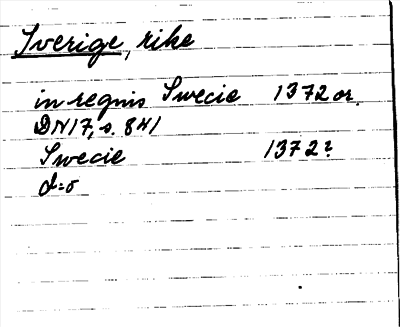 Sverige, rike
in regnis Swecie 1372 or.
DN17, s. 841
Swecie 1372?
d:o